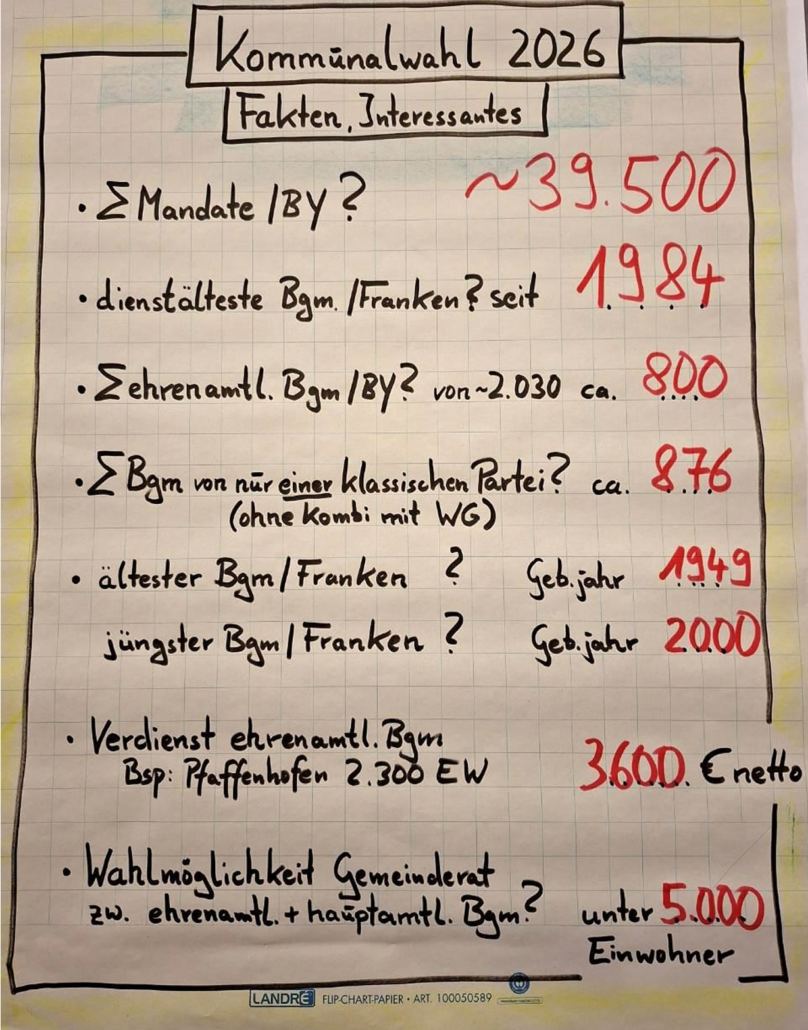 Kommunalwahl 2026
Fakten, Interessantes
• Σ Mandate /BY? ~39.500
• dienstälteste Bgm. /Franken? seit 1984
• Σ ehrenamtl. Bgm /BY? von ~2.030 ca. 800
• Σ Bgm von nur einer klassischen Partei? ca. 876
(ohne Kombi mit WG)
• ältester Bgm / Franken ? Geb.jahr 1949
jüngster Bgm / Franken ? Geb.jahr 2000
• Verdienst ehrenamtl. Bgm
Bsp: Pfaffenhofen 2.300 EW 3600 € netto
• Wahlmöglichkeit Gemeinderat
zw. ehrenamtl. + hauptamtl. Bgm? unter 5.000
Einwohner
LANDRÉ FLIP-CHART-PAPIER • ART. 100050589